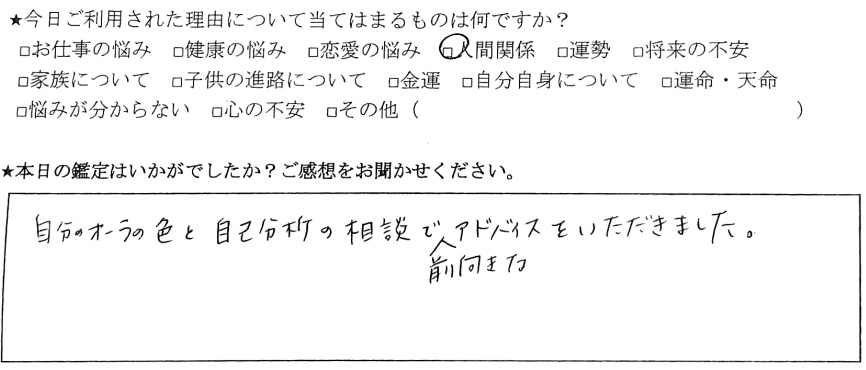 ★今日ご利用された理由について当てはまるものは何ですか？
□お仕事の悩み □健康の悩み □恋愛の悩み □人間関係 □運勢 □将来の不安
□家族について □子供の進路について □金運 □自分自身について □運命・天命
□悩みが分からない □心の不安 □その他（ ）
★本日の鑑定はいかがでしたか？ご感想をお聞かせください。
自分のオーラの色と自己分析の相談でアドバイスをいただきました。
前向きな